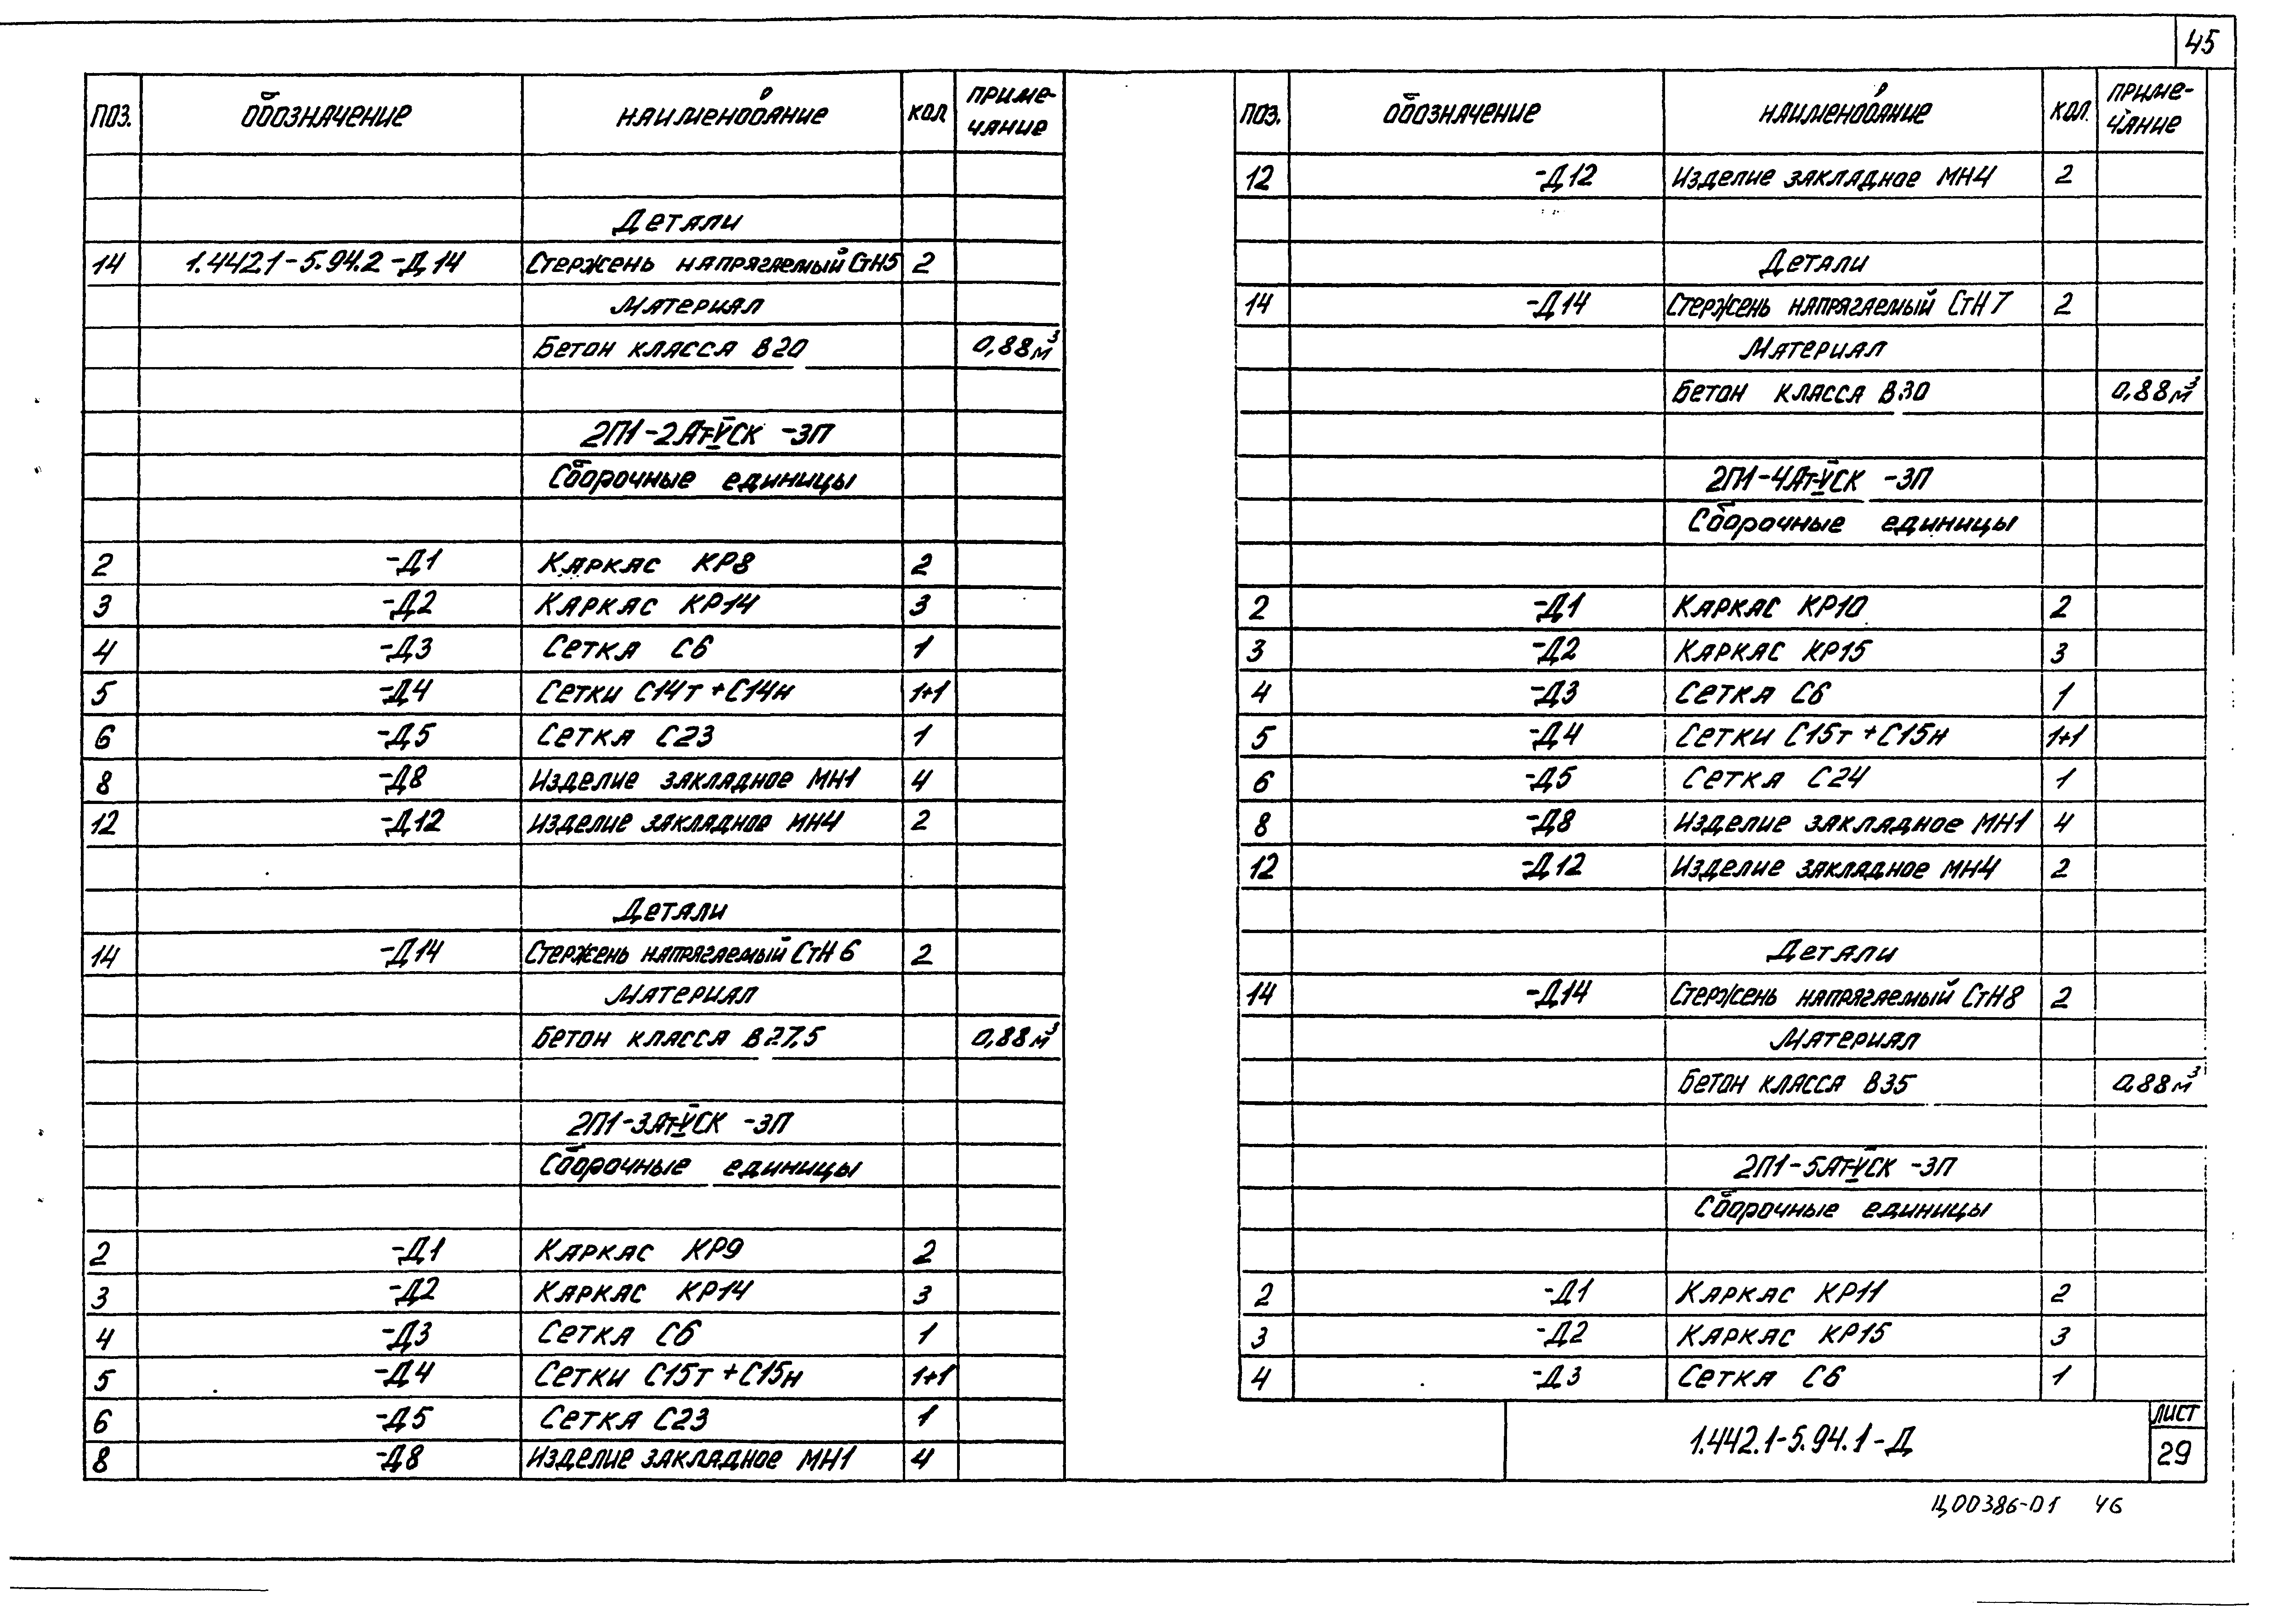 45
ПОЗ. ОБОЗНАЧЕНИЕ НАИМЕНОВАНИЕ КОЛ ПРИМЕ-
ЧАНИЕ
Детали
14 1.442.1-5.94.2-Д14 Стержень напрягаемый СтН5 2
Материал
Бетон класса В20 0,88м³
2П1-2АтVСК-3П
Сборочные единицы
2 -Д1 Каркас КР8 2
3 -Д2 Каркас КР14 3
4 -Д3 Сетка С6 1
5 -Д4 Сетки С14т+С14н 1+1
6 -Д5 Сетка С23 1
8 -Д8 Изделие закладное МН1 4
12 -Д12 Изделие закладное МН4 2
Детали
14 -Д14 Стержень напрягаемый СтН6 2
Материал
Бетон класса В27,5 0,88м³
2П1-3АтVСК-3П
Сборочные единицы
2 -Д1 Каркас КР9 2
3 -Д2 Каркас КР14 3
4 -Д3 Сетка С6 1
5 -Д4 Сетки С15т+С15н 1+1
6 -Д5 Сетка С23 1
8 -Д8 Изделие закладное МН1 4
ПОЗ. ОБОЗНАЧЕНИЕ НАИМЕНОВАНИЕ КОЛ. ПРИМЕ-
ЧАНИЕ
12 -Д12 Изделие закладное МН4 2
Детали
14 -Д14 Стержень напрягаемый СтН7 2
Материал
Бетон класса В30 0,88м³
2П1-4АтVСК-3П
Сборочные единицы
2 -Д1 Каркас КР10 2
3 -Д2 Каркас КР15 3
4 -Д3 Сетка С6 1
5 -Д4 Сетки С15т+С15н 1+1
6 -Д5 Сетка С24 1
8 -Д8 Изделие закладное МН1 4
12 -Д12 Изделие закладное МН4 2
Детали
14 -Д14 Стержень напрягаемый СтН8 2
Материал
Бетон класса В35 0,88м³
2П1-5АтVСК-3П
Сборочные единицы
2 -Д1 Каркас КР11 2
3 -Д2 Каркас КР15 3
4 -Д3 Сетка С6 1
1.442.1-5.94.1-Д
ЛИСТ
29
Ц00386-01 46